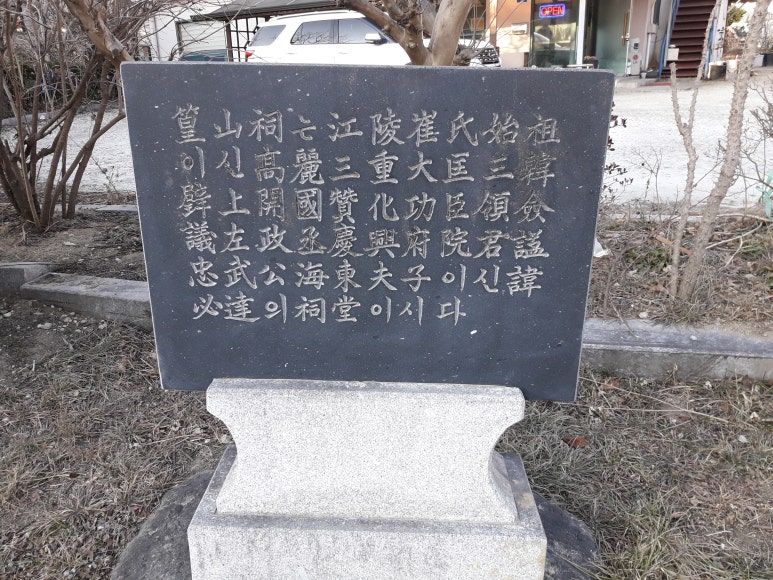 OPEN
篁山祠는江陵崔氏始祖
이신高麗三重大匡三韓
壁上開國贊化功臣領僉
議左政丞慶興府院君諡
忠武公海東夫子이신諱
必達의祠堂이시다